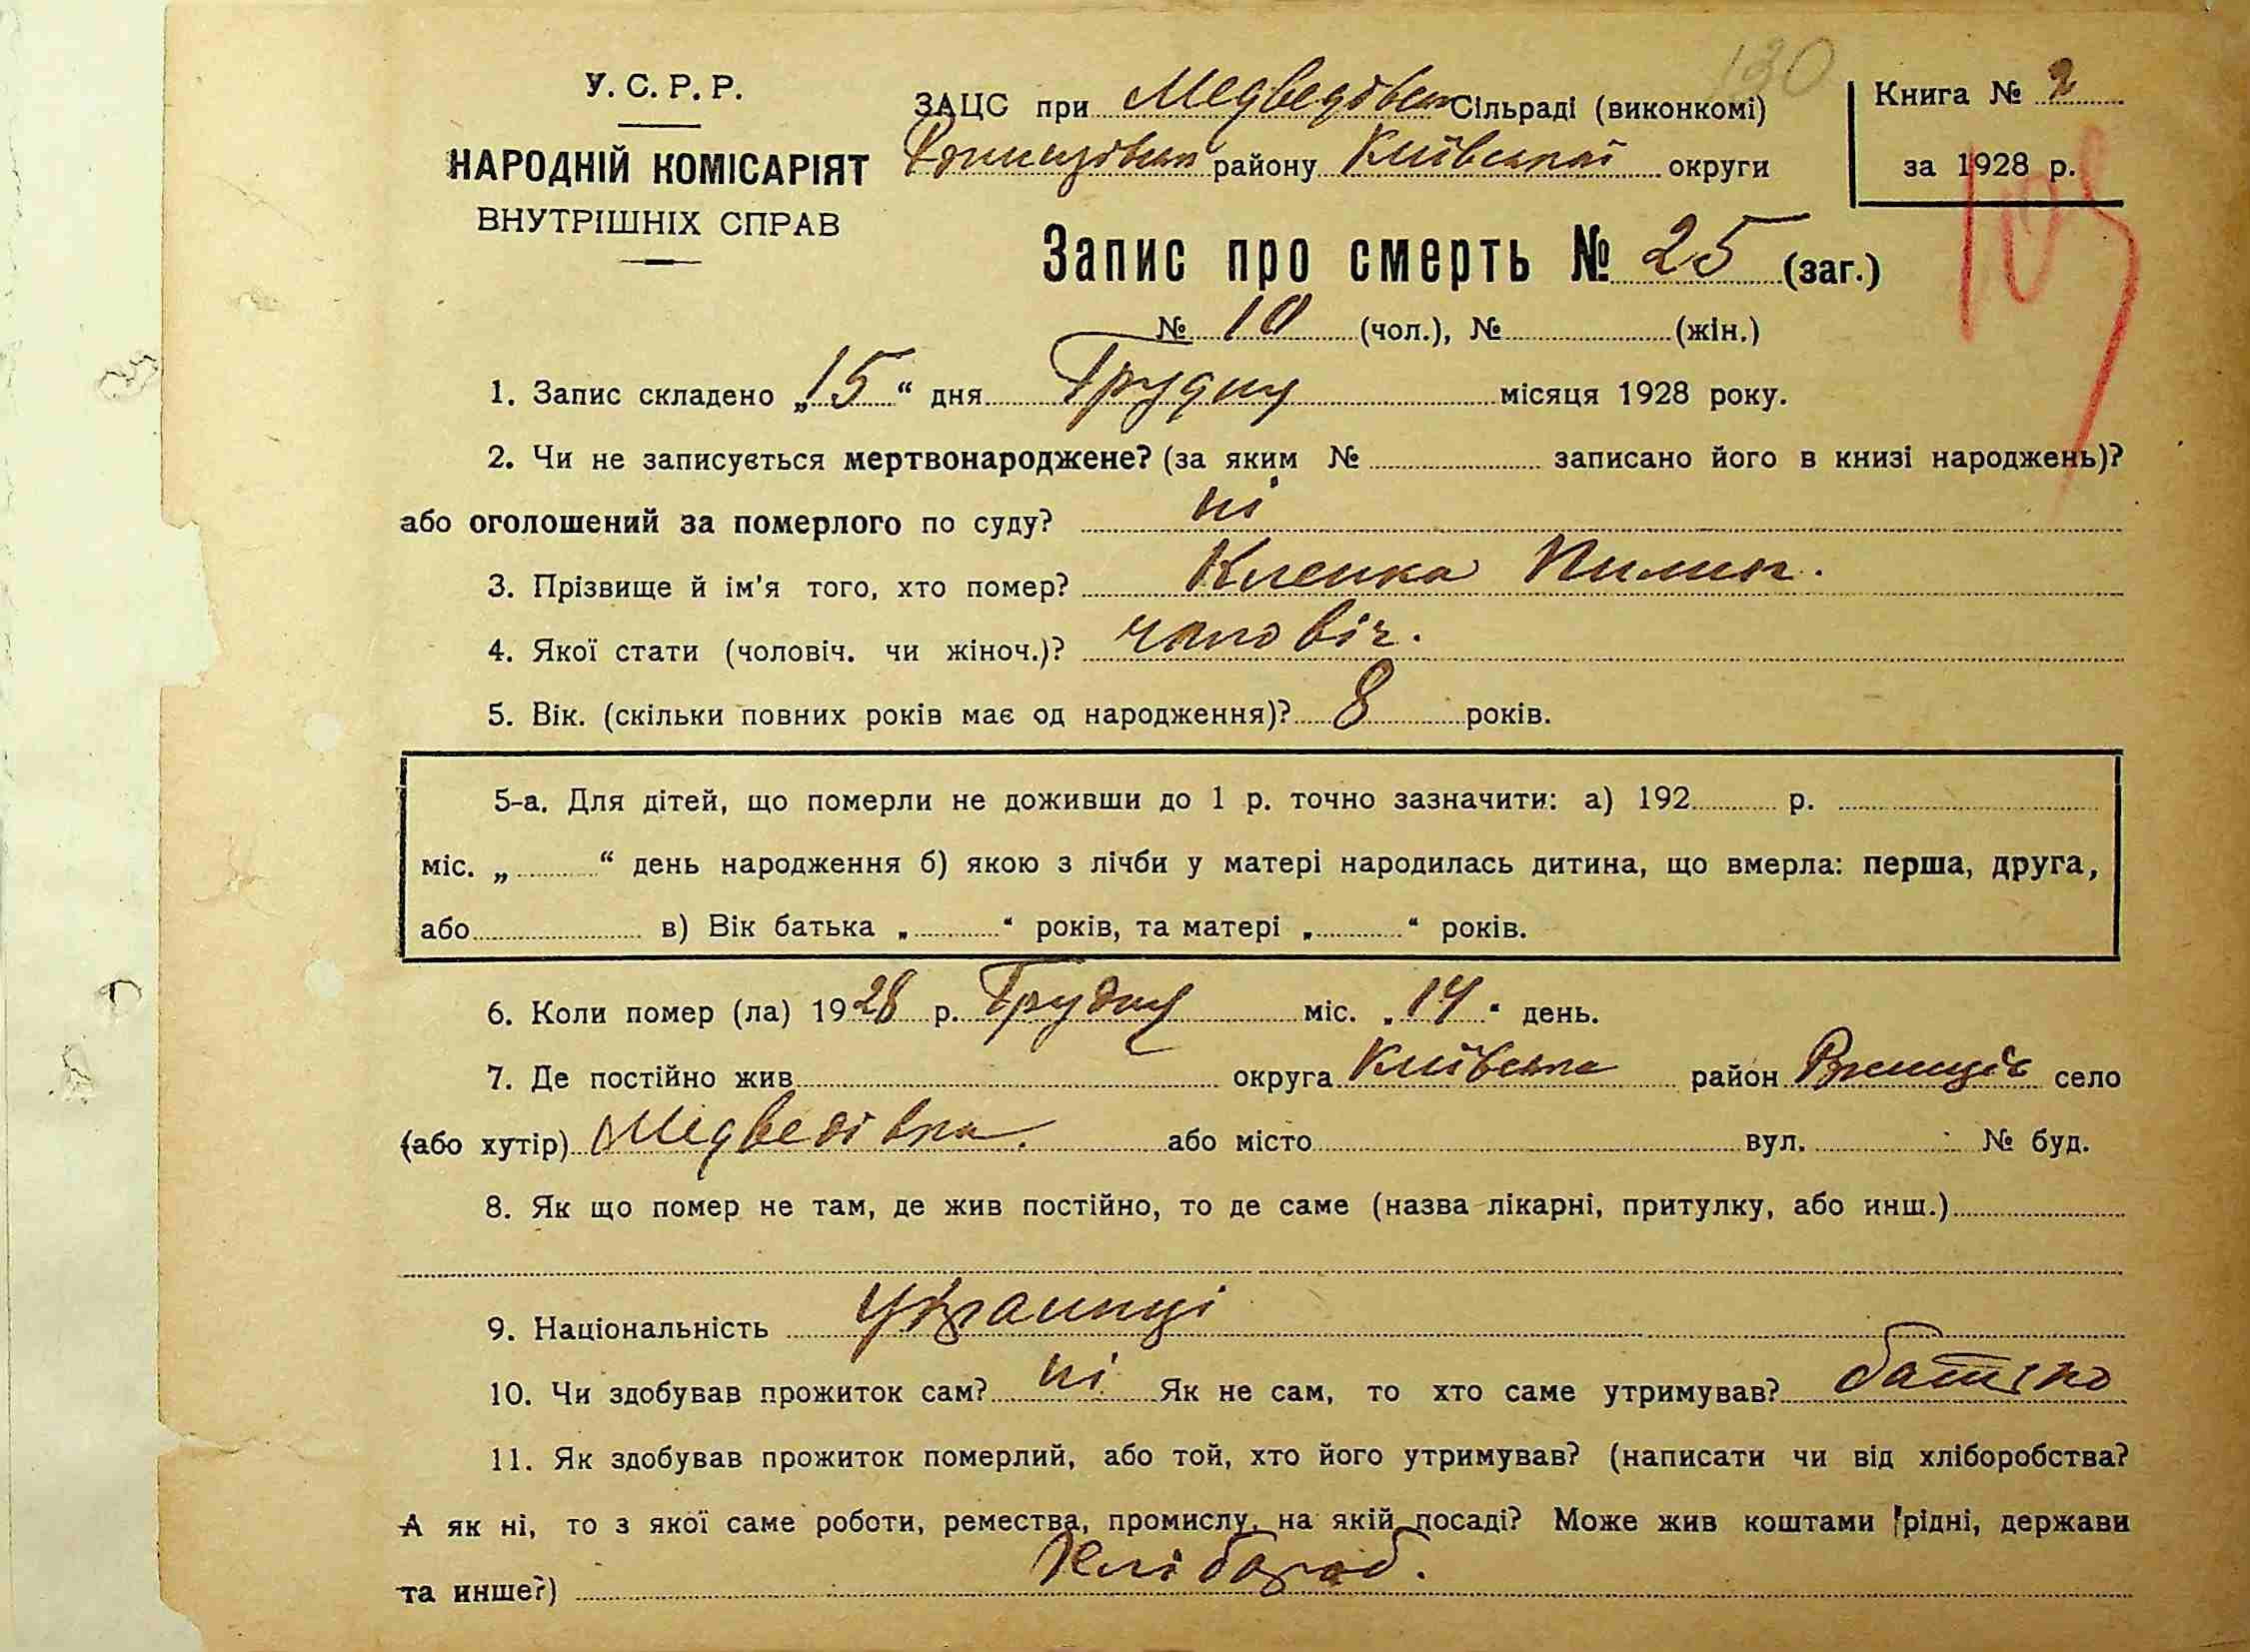 130
У. С. Р. Р.
НАРОДНІЙ КОМІСАРІЯТ
ВНУТРІШНІХ СПРАВ
ЗАЦС при Медведівськ Сільраді (виконкомі)
району Київської округи
Книга № 2
за 1928 р.
105
Запис про смерть № 25 (заг.)
№ 10 (чол.), № (жін.)
1. Запис складено „15“ дня Грудня місяця 1928 року.
2. Чи не записується мертвонароджене? (за яким № записано його в книзі народжень)?
або оголошений за померлого по суду? ні
3. Прізвище й ім'я того, хто помер? Пилип.
4. Якої стати (чоловіч. чи жіноч.)? чоловіч.
5. Вік. (скільки повних років має од народження)? 8 років.
5-а. Для дітей, що померли не доживши до 1 р. точно зазначити: а) 192 р.
міс. „ “ день народження б) якою з лічби у матері народилась дитина, що вмерла: перша, друга,
або в) Вік батька „ “ років, та матері „ “ років.
6. Коли помер (ла) 1928 р. Грудня міс. „14“ день.
7. Де постійно жив округа Київська район село
(або хутір) Медведівка. або місто вул. № буд.
8. Як що помер не там, де жив постійно, то де саме (назва лікарні, притулку, або инш.)
9. Національність Українці
10. Чи здобував прожиток сам? ні Як не сам, то хто саме утримував? батько
11. Як здобував прожиток померлий, або той, хто його утримував? (написати чи від хліборобства?
А як ні, то з якої саме роботи, ремества, промислу, на якій посаді? Може жив коштами рідні, держави
та инше?) Хлібороб.